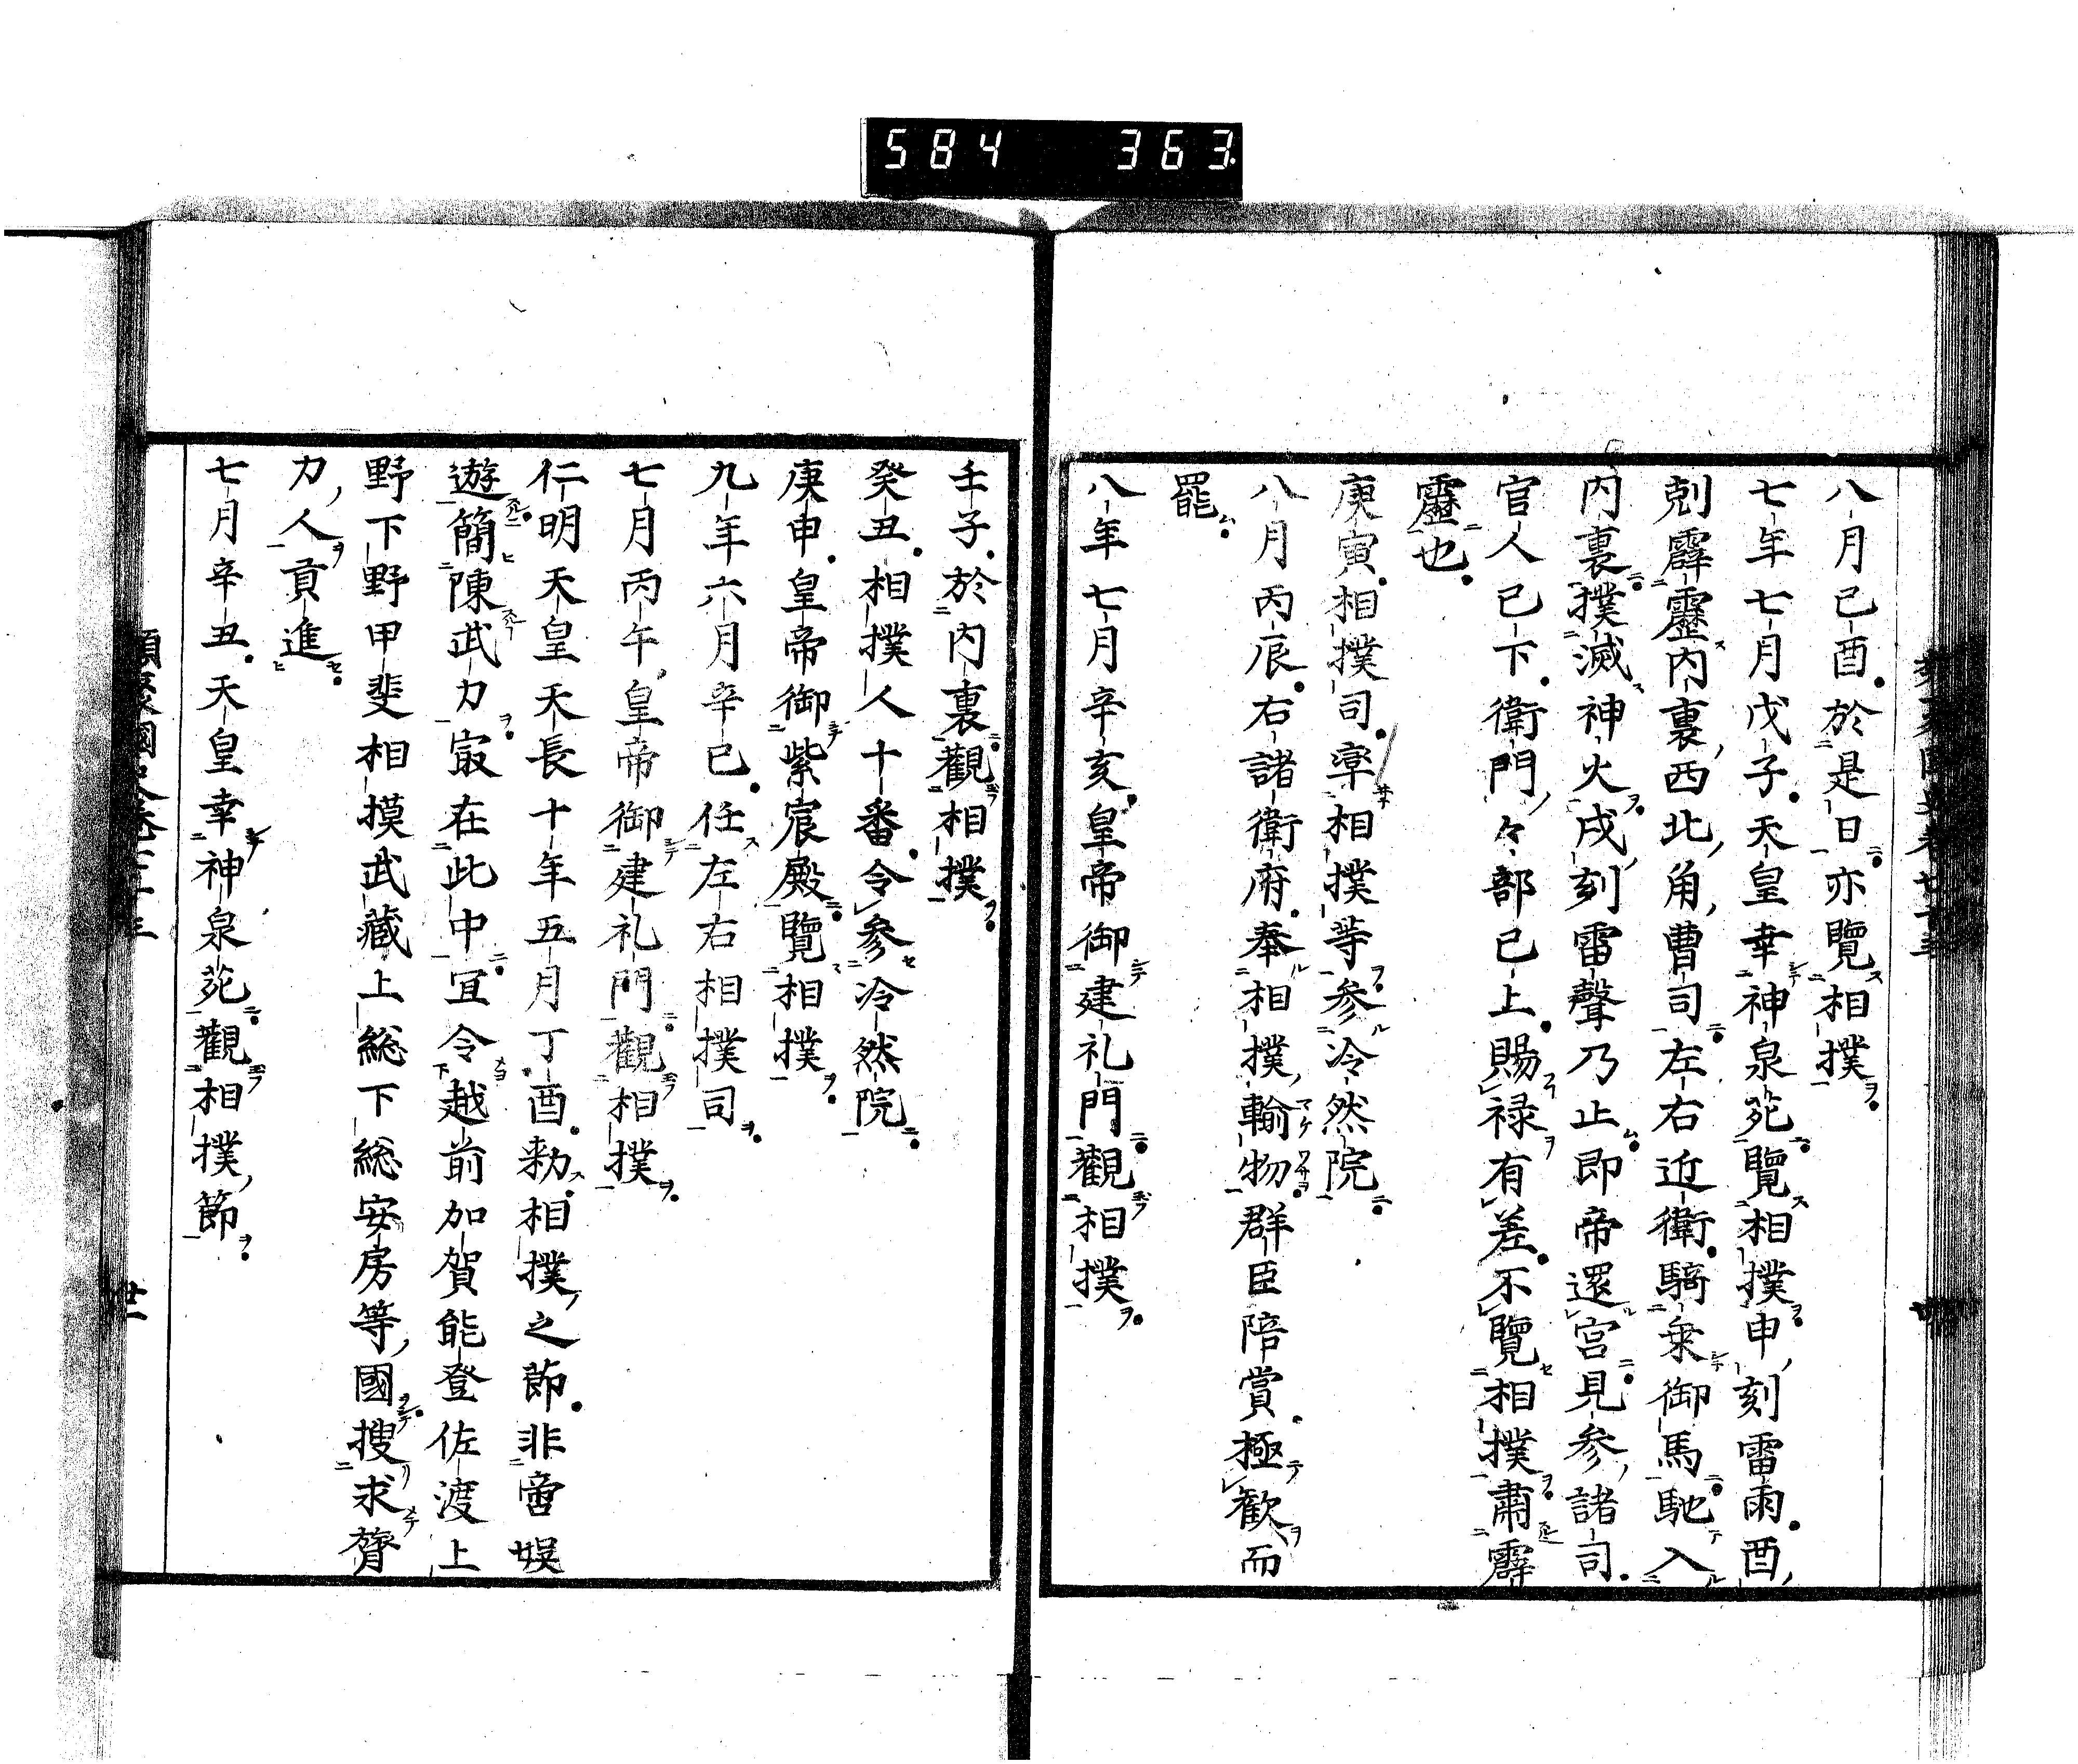 584 363
八月己酉於是日亦覽相撲
七年七月戊子天皇幸神泉苑覽相撲申刻雷雨酉
剋霹靂内裏西北角曹司左右近衛騎乗御馬馳入
内裏撲滅神火戌刻雷聲乃止即帝還宮見参諸司
官人已下衛門々部已上賜禄有差不覽相撲肅霹
靂也
庚寅相撲司率相撲等参冷然院
八月丙辰右諸衛府奉相撲輸物群臣陪賞極歓而
罷
八年七月辛亥皇帝御建礼門觀相撲
壬子於内裏觀相撲
癸丑相撲人十番令参冷然院
庚申皇帝御紫宸殿覽相撲
九年六月辛已任左右相撲司
七月丙午皇帝御建礼門觀相撲
仁明天皇天長十年五月丁酉勅相撲之節非啻娯
遊簡陳武力㝡在此中宜令越前加賀能登佐渡上
野下野甲斐相摸武藏上総下総安房等國搜求膂
力人貢進
七月辛丑天皇幸神泉苑觀相撲節